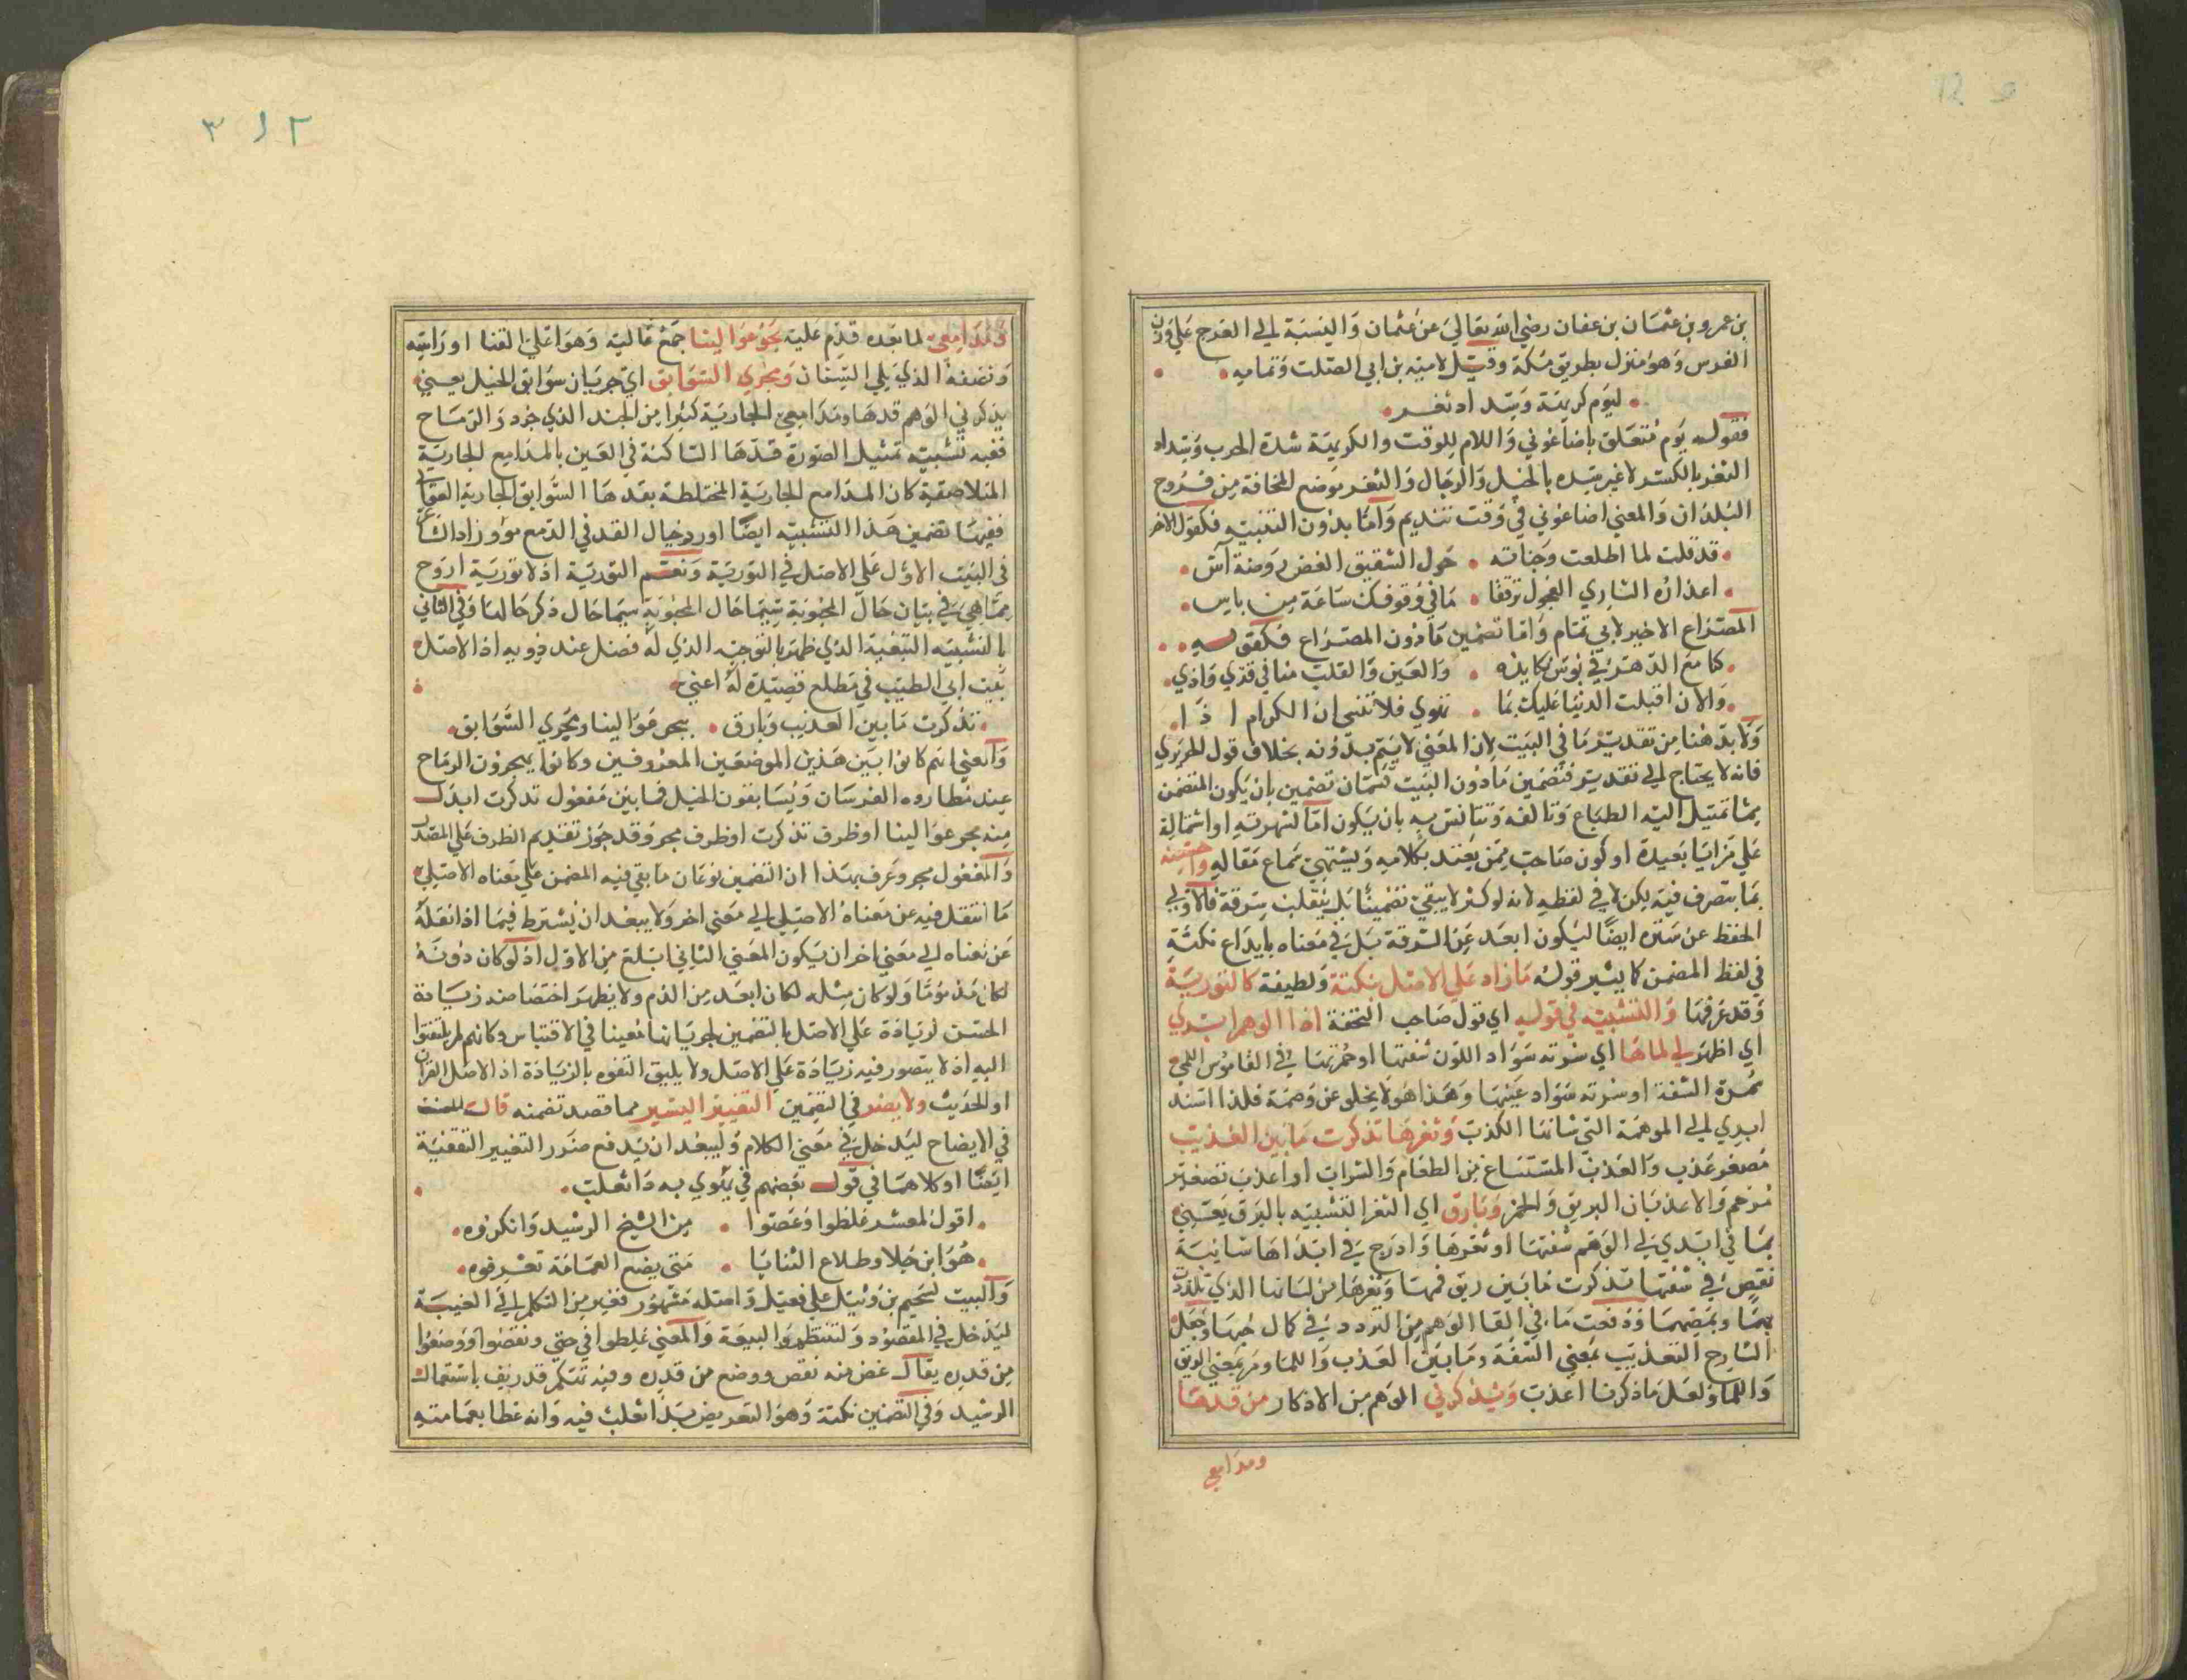 بن عمرو بن عثمان بن عفان رضي الله تعالى عن عثمان والنسبة الى العرج على وزن
الفرس وهو منزل بطريق مكة وقيل لامية بن ابي الصلت وتمامه
ليوم كريهة وسداد ثغر
فقوله يوم متعلق باضاعوني واللام للوقت والكريهة شدة الحرب وسداد
الثغر بالكسر لا غير سده بالخيل والرجال والثغر موضع المخافة من فروج
البلدان والمعنى اضاعوني في وقت واما بدون التنبيه فكقول الاخر
قد قلت لما اطلعت وجناته حول الشقيق الغض روضة آس
اعذاره الساري العجول ترفقا ما في وقوفك ساعة من باس
المصراع الاخير لابي تمام واما تضمين ما دون المصراع فكقوله
كنا مع الدهر في بؤس نكابده والعين والقلب منا في قذي واذي
والان اقبلت الدنيا عليك بما تهوي فلا تنسى ان الكرام اذا
ولا بد هنا من تقدير ما في البيت لان المعني لا يتم بدونه بخلاف قول الحريري
فانه لا يحتاج الى تقدير فتضمين ما دون البيت تضمين بان يكون المتضمن
مما تميل اليه الطباع وتالفه وتتانس به بان يكون اما لشهرته او اشتماله
علي مزايا بعيدة او كون صاحبه ممن يعتد بكلامه ويشتهي سماع مقاله واحسنه
بما يتصرف فيه لكن لا في لفظه لانه لو كثر لا يبقي تضمينا بل ينقلب سرقة فالاولي
الحفظ عن ايضا ليكون ابعد عن السرقة بل في معناه بايداع نكتة
في لفظ المضمن كما يشير قوله ما زاد علي الاصل بنكتة ولطيفة كالتورية
وقد عرفتها والتشبيه في قوله اي قول صاحب التحفة اذا الوهم ابدي
اي اظهر لي لماها اي سواد اللون شفتها او حمرتها في القاموس اللمي
سمرة الشفة او سواد عينها وهذا هو لا يخلو عن وصمة فلذا اسند
ابدي الى الوهمة التي شانها الكذب وثغرها تذكرت ما بين العذيب
مصغر عذب والعذب المستساغ من الطعام والشراب او اعذب تصغير
مرخم والاعذبان الريق والخمر وبارق اي الثغر التشبيه بالبرق يعني
بما في ابدي لي الوهم شفتها او ثغرها وادرج في ابداها شائبة
نقص في شفتها تذكرت ما بين ريق فمها وثغرها من لسانها الذي تلذذت
بها وبمصها ودفعت ما في القا الوهم من التردد في كمال حبها وجعل
الشارح العذيب بمعني الشفة وما بين العذب واللما ومر بمعني الريق
واللما ولعل ما ذكرنا اعذب ويذكرني الوهم من الاذكار من قدها
ومدامعي
٣١٢
ومدامعي لما بعده قدم عليه مجر عوالينا جمع عالية وهو اعلي القنا او راسه
ونصفه الذي يلي السنان ومجري السوابق اي جريان سوابق الخيل يعني
يذكرني الوهم قدها ومدامعي الجارية كثيرا من الجند الذي جرد والرماح
ففيه تشبيه تمثيل الصورة قدها الساكنة في العين بالمدامع الجارية
المتلاصقة كان المدامع الجارية المختلطة بقدها السوابق الجارية
ففيها تضمين هذا التشبيه ايضا او رد خيال القد في الدمع
في البيت الاول علي الاصل في التورية ونعم التورية اذ لا تورية اروح
مما هي في بيان حال المحبوبة سيما حال المحبوبة سيما حال ذكر حالها وفي الثاني
بالتشبيه التبعية الذي ظهر بالتوجيه الذي له فضل عند ذويه اذ الاصل
بيت ابي الطيب في مطلع قصيدة له اعني
تذكرت ما بين العذيب وبارق مجر عوالينا ومجري السوابق
والمعني انهم كانوا بين هذين الموضعين المعروفين وكانوا يجرون الرماح
عند مطاردة الفرسان ويسابقون الخيل فما بين مفعول تذكرت ابدل
منه مجر عوالينا او ظرف تذكرت او ظرف مجر وقد جوز تقديم الظرف علي المصدر
والمفعول مجر وعرف بهذا ان التضمين نوعان ما بقي فيه المضمن علي معناه الاصلي
ما انتقل فيه عن معناه الاصلي الي معني اخر ولا يبعد ان يشترط فيما اذا نقله
عن معناه الي معني اخر ان يكون المعني الثاني ابلغ من الاول اذ لو كان دونه
لكان مذموما ولو كان مثله لكان ابعد من الذم ولا يظهر اختصاصه زيادة
الحسن لزيادة علي الاصل بالتضمين لجريانها معينا في الاقتباس وكانهم لم يلتفتوا
اليه اذ لا يتصور فيه زيادة علي الاصل ولا يليق التفوه بالزيادة اذ الاصل القران
او الحديث ولا يضر في التضمين التغيير اليسير مما قصد تضمنه قال المصنف
في الايضاح ليدخل في معني الكلام ولا يبعد ان يدفع ضرر التغيير التقفية
ايضا او كلاهما في قول بعضهم في يهودي به داء ثعلب
اقول لمعشر غلطوا وغضوا من الشيخ الرشيد وانكروه
هو ابن جلا وطلاع الثنايا متى يضع العمامة تعرفوه
والبيت لسحيم بن وثيل علي فعيل واصله مشهور فغير من التكلم الي الغيبة
ليدخل في المقصود ولتنتظم والمعني غلطوا في حتي ونقصوا ووضعوا
من قدره يقال غض منه نقص ووضع من قدره وفيه تهكم باستعمال
الرشيد وفي التضمين نكتة وهو التعريض بداء ثعلب فيه وانه غطا بعمامته